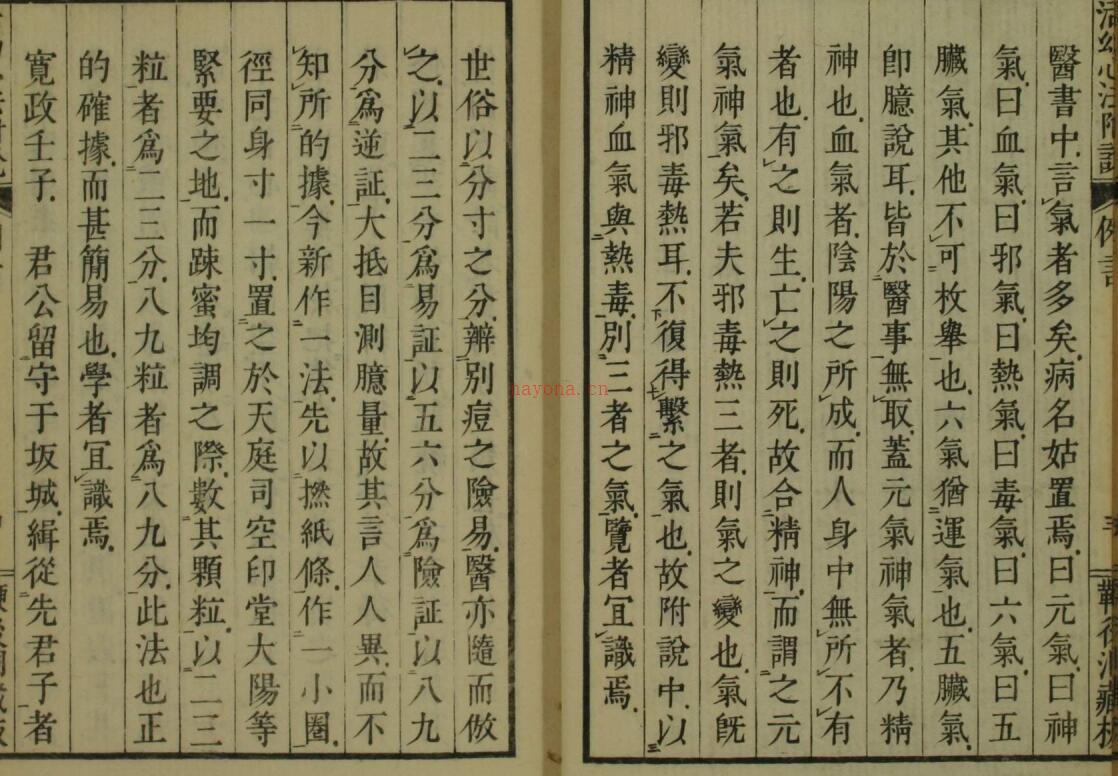 醫書中言氣者多矣病名姑置焉曰元氣曰神
氣曰血氣曰邪氣曰熱氣曰毒氣曰六氣曰五
臟氣其他不可枚舉也六氣猶運氣也五臟氣
即臆說耳皆於醫事無取蓋元氣神氣者乃精
神也血氣者陰陽之所成而人身中無所不有
者也有之則生亡之則死故合精神而謂之元
氣神氣矣若夫邪毒熱三者則氣之變也氣既
變則邪毒熱耳不復得繫之氣也故附說中以
精神血氣與熱毒別三者之氣覽者宜識焉
世俗以分寸之分辨別痘之險易醫亦隨而倣
之以二三分為易証以五六分為險証以八九
分為逆証大抵目測臆量故其言人人異而不
知所的據今新作一法先以撚紙條作一小圈
徑同身寸一寸置之於天庭司空印堂大陽等
緊要之地而踈蜜均調之際數其顆粒以二三
粒者為二三分八九粒者為八九分此法也正
的確據而甚簡易也學者宜識焉
寬政壬子 君公留守于坂城緝從先君子者
nayona.cn